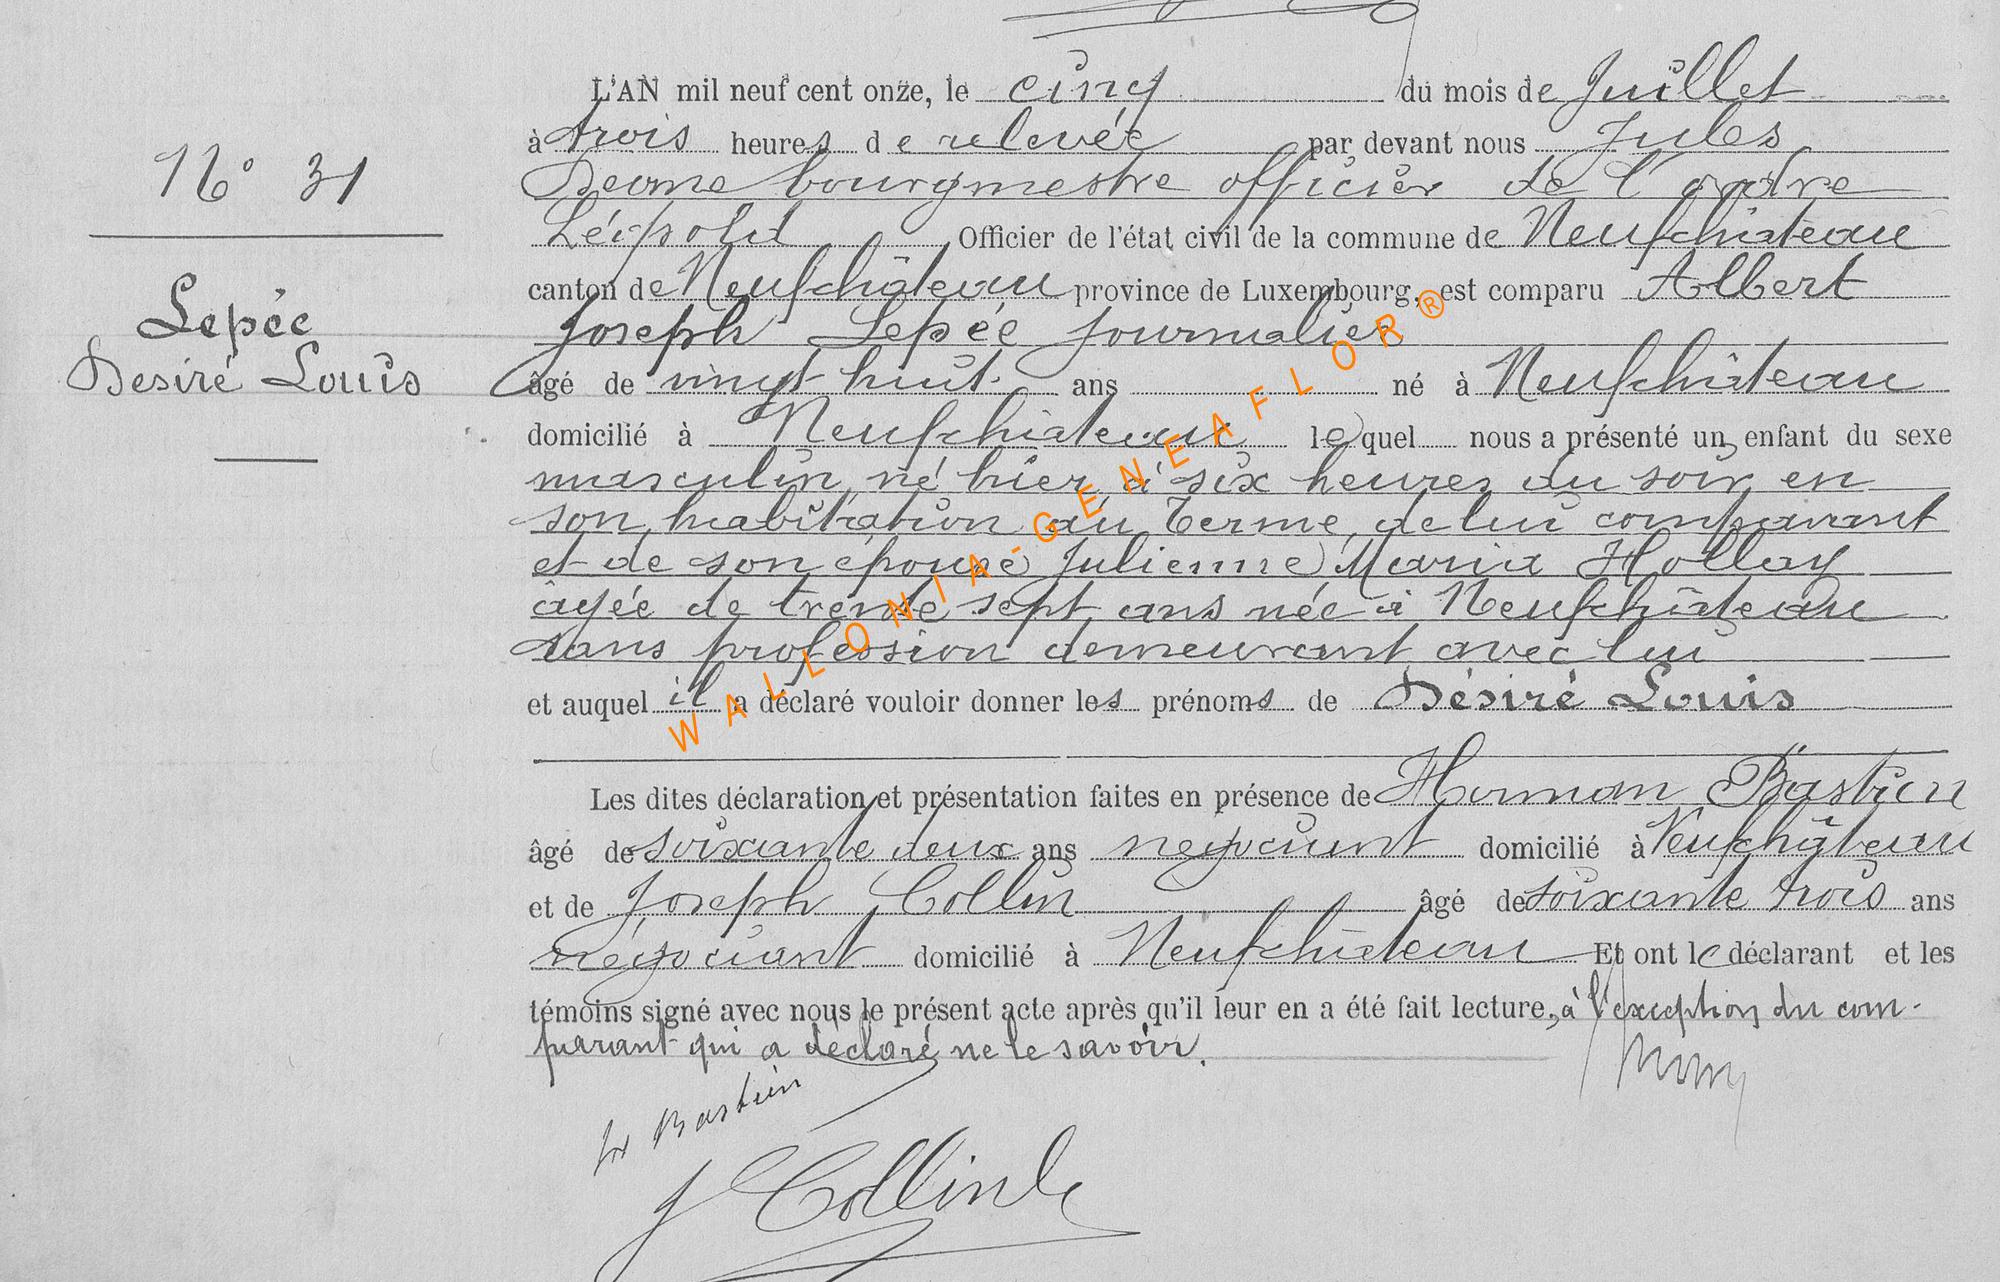 L'AN mil neuf cent onze, le cinq du mois de Juillet
à trois heures de relevée par devant nous Jules
bourgmestre officier de l'ordre
Léopold Officier de l'état civil de la commune de Neufchâteau
canton de Neufchâteau province de Luxembourg, est comparu Albert
Joseph Lepée journalier
âgé de vingt huit ans né à Neufchâteau
domicilié à Neufchâteau lequel nous a présenté un enfant du sexe
masculin, né hier à six heures du soir, en
son habitation au Terme, de lui comparant
et de son épouse Julienne Maria Hollay
âgée de trente sept ans née à Neufchâteau
sans profession demeurant avec lui
et auquel il a déclaré vouloir donner les prénoms de Désiré Louis
Les dites déclaration et présentation faites en présence de Herman Bastien
âgé de soixante deux ans négociant domicilié à Neufchâteau
et de Joseph Collin âgé de soixante trois ans
négociant domicilié à Neufchâteau Et ont le déclarant et les
témoins signé avec nous le présent acte après qu'il leur en a été fait lecture, à l'exception du com-
parant qui a déclaré ne le savoir.
Bastien
J Collin
N° 31
Lepée
Desiré Louis
WALLONIA-GENEAFLOR®